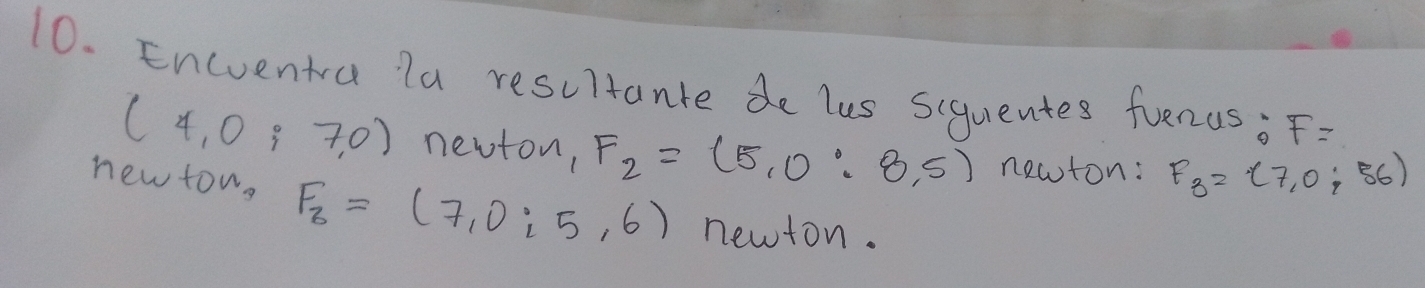 10. Encuentra la resultante de las siguientes fuerzas: F=
(4,0 ; 7,0) newton, F2 = (5,0 : 8,5) newton: F3= (7,0 ; 56)
newton, F3 = (7,0 ; 5,6) newton.